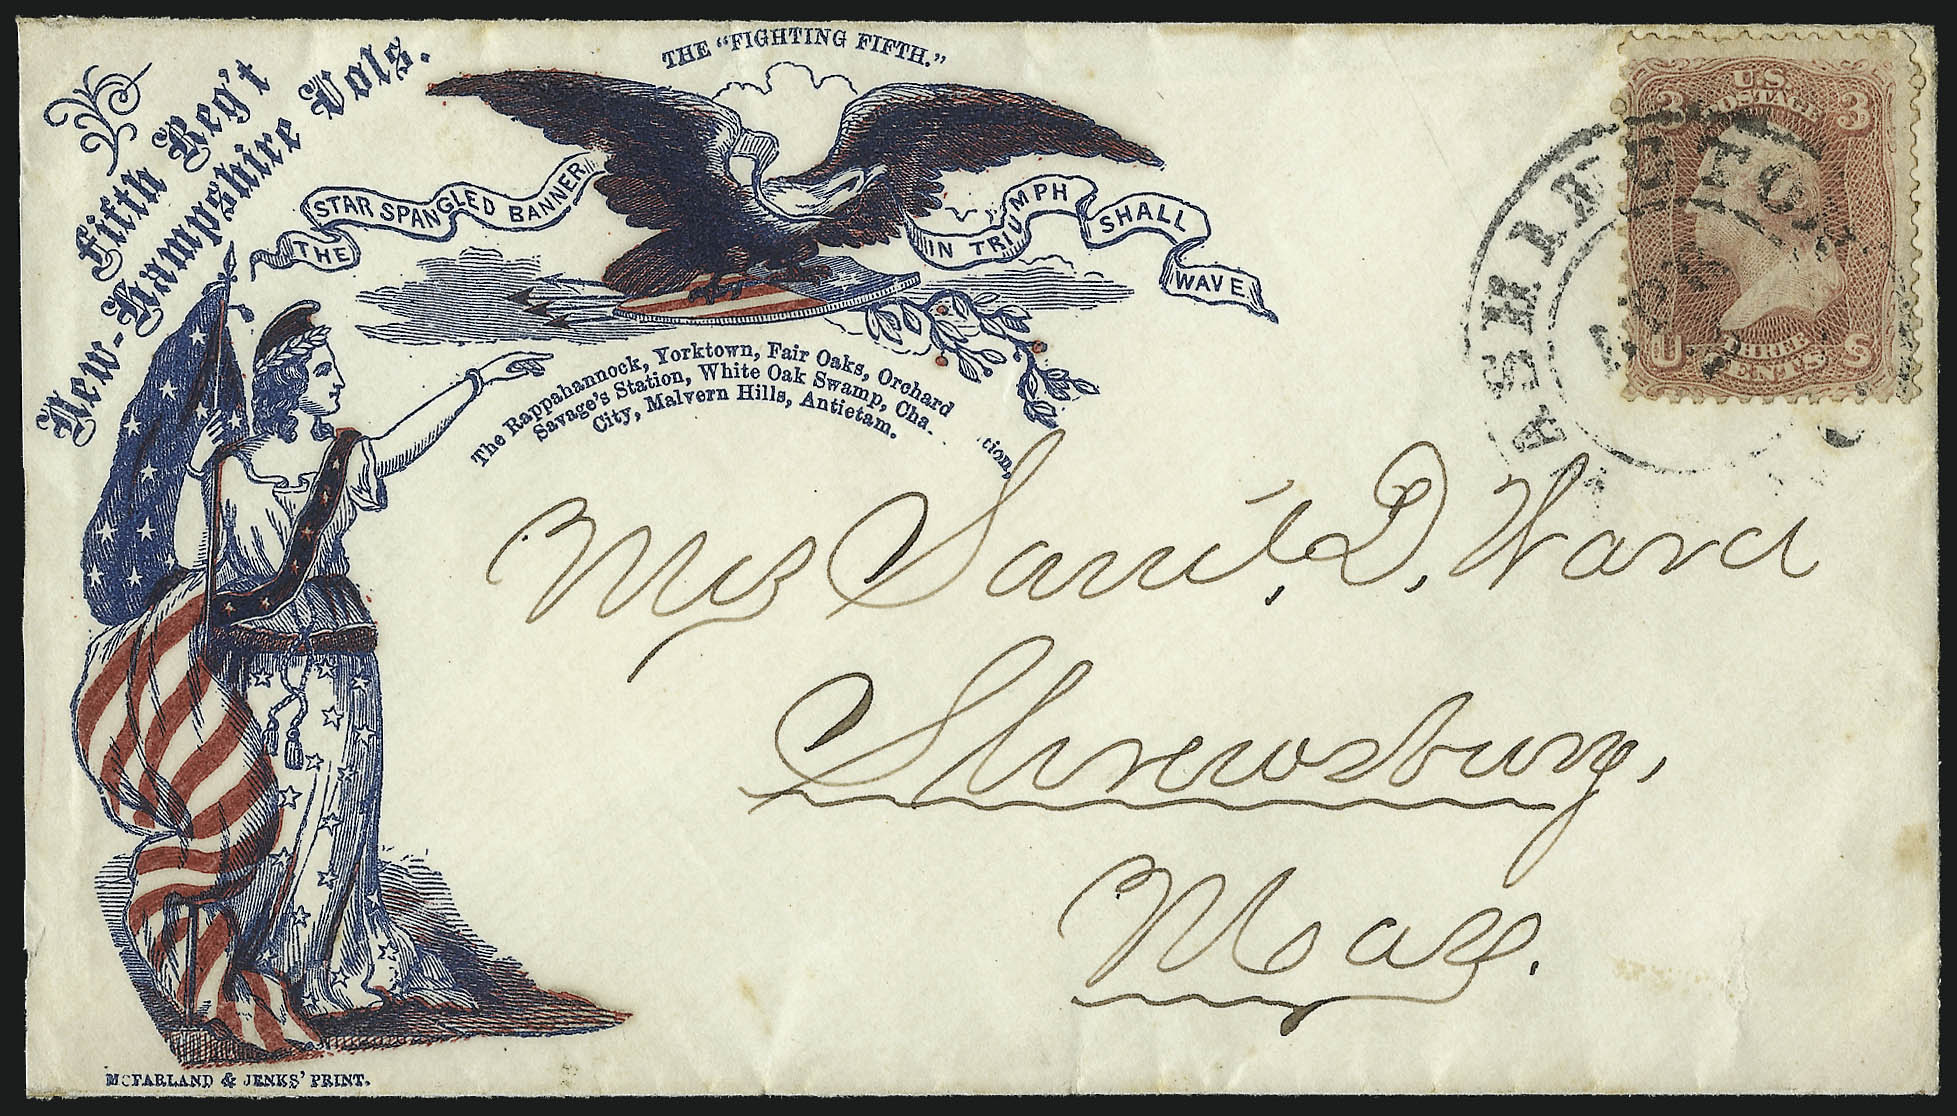 THE "FIGHTING FIFTH."
Fifth Reg't
New-Hampshire Vols.
THE STAR SPANGLED BANNER IN TRIUMPH SHALL WAVE
The Rappahannock, Yorktown, Fair Oaks, Orchard
Savage's Station, White Oak Swamp, Cha
tion,
City, Malvern Hills, Antietam.
U.S. POSTAGE
3 3
U THREE CENTS S
WASHINGTON
Mrs Sam'l. D. Ward
Shrewsbury,
Mass.
McFARLAND & JENKS' PRINT.